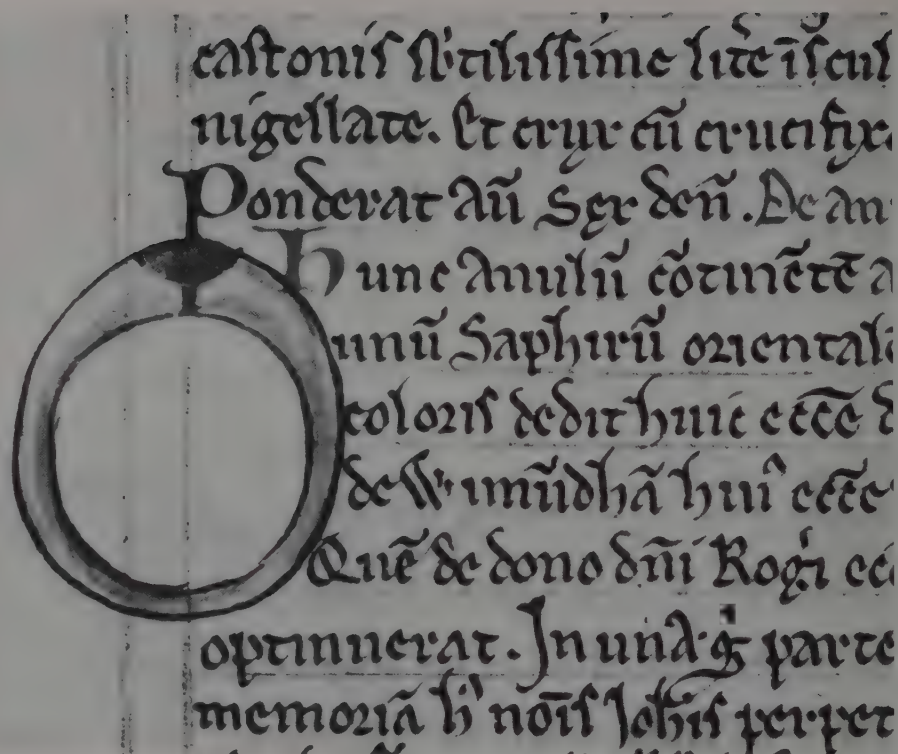 castonis sbtilissime litẽ ĩscul
nigellate. Et crux cũ crucifix
Ponderat aũ Sex deñ. De an
hunc Anulũ cõtinẽtẽ a
unũ Saphirũ orientale
coloris dedit huic eccẽ d
de Wimũdhã huiꝰ eccẽ
Quẽ de dono dñi Rogi
optinuerat. In una g̃ parte
memoriã hꝰ noĩs Johis perpet